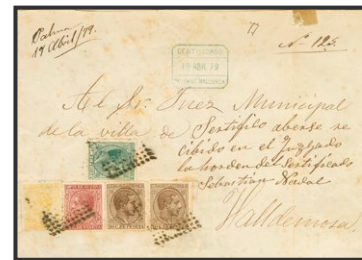 Palma
19 Abril/79.
Nº 125
CERTIFICADO
19 ABR 79
Al Sr. Juez Municipal
de la villa de
Sertifico aberse re
cibido en el Juzgado
la horden del Sertificado
Sebastian Nadal
Valldemosa